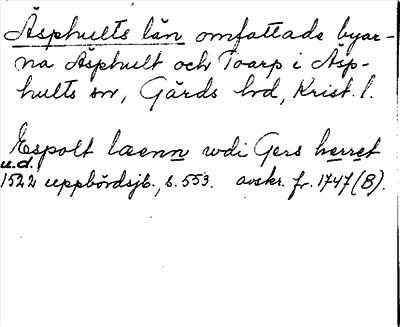 Äsphults län omfattade byar-
na Äsphult och Toarp i Äsp-
hults sn, Gärds hrd, Krist. l.
Espolt læenn wdi Gers herret
u.d.
1522 uppbördsjb., s. 553. avskr. fr. 1747 (B).